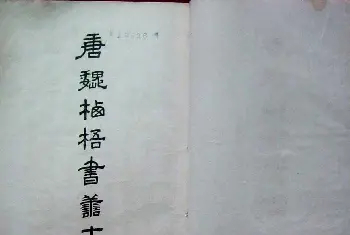 唐魏栖梧書善才